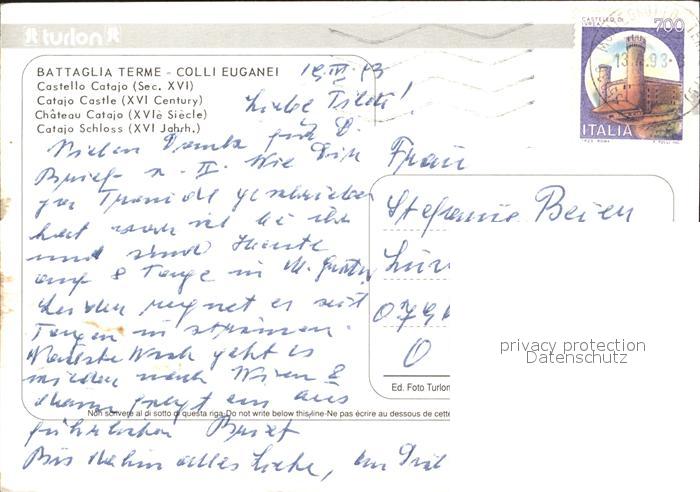 turlon
CASTELLO DI IVREA 700
ITALIA
BATTAGLIA TERME - COLLI EUGANEI
Castello Catajo (Sec. XVI)
Catajo Castle (XVI Century)
Château Catajo (XVIè Siècle)
Catajo Schloss (XVI Jahrh.)
Liebe
Vielen Dank für D.
Brief n. II. Wie Dir
geschrieben
hat war ich bei ihr
und sind heute
auf 8 Tage in M.
Leider regnet es seit
Tagen in strömen.
Nächste Woche geht es
wieder nach Wien &
dann folgt ein aus
führlicher Brief
Bis dahin alles Liebe,
Frau
Stefanie Beier
O
privacy protection
Datenschutz
Ed. Foto Turlon
Non scrivere al di sotto di questa riga-Do not write below this line-Ne pas écrire au dessous de cette